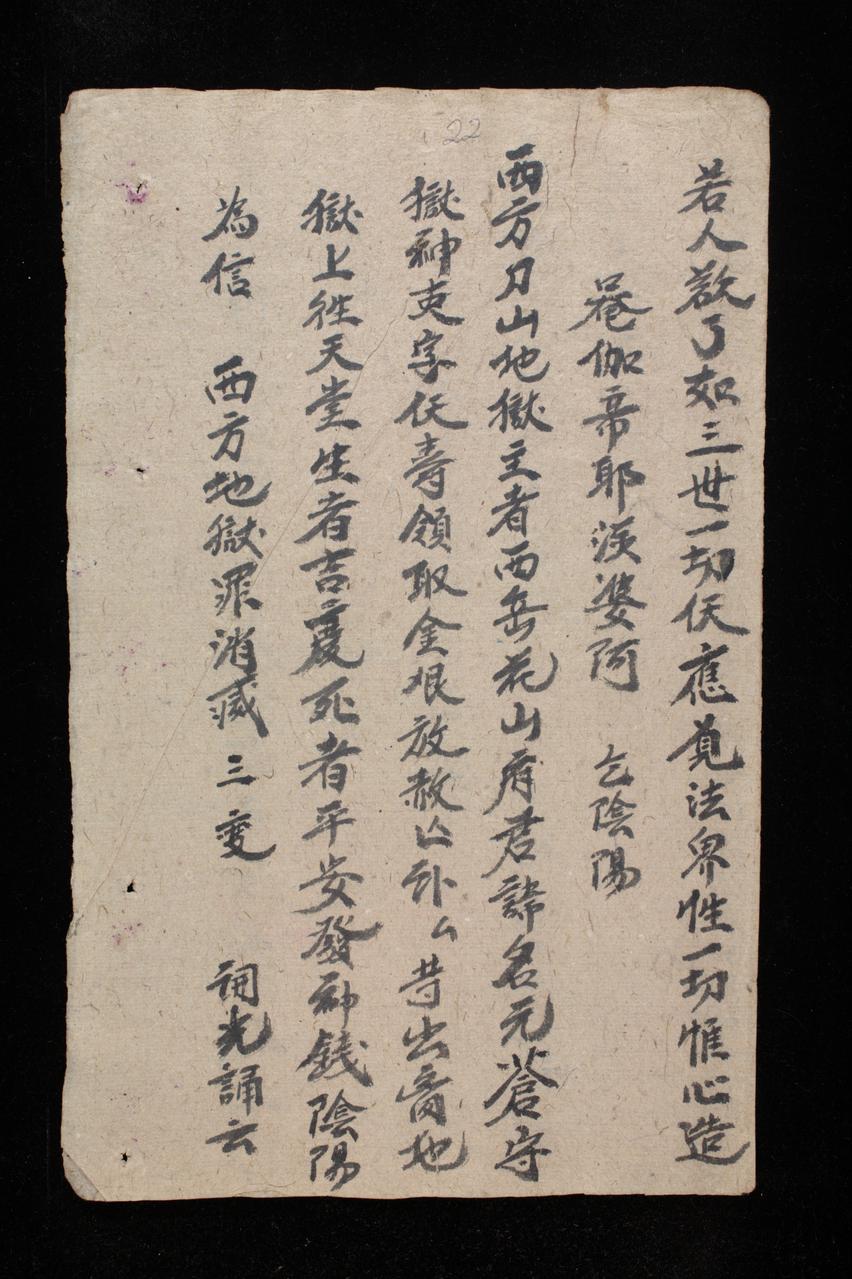 22
若人欲了知三世一切仸應覓法界性一切惟心造
唵伽帝耶㳬婆阿 乞陰陽
西方刀山地獄主者西岳花山府君諱名元蒼守
獄神吏字仸壽領取金艮放赦亡卦厶昔出离地
獄上往天堂生者吉慶死者平安發神錢陰陽
為信 西方地獄罪消滅三变 詞光誦云